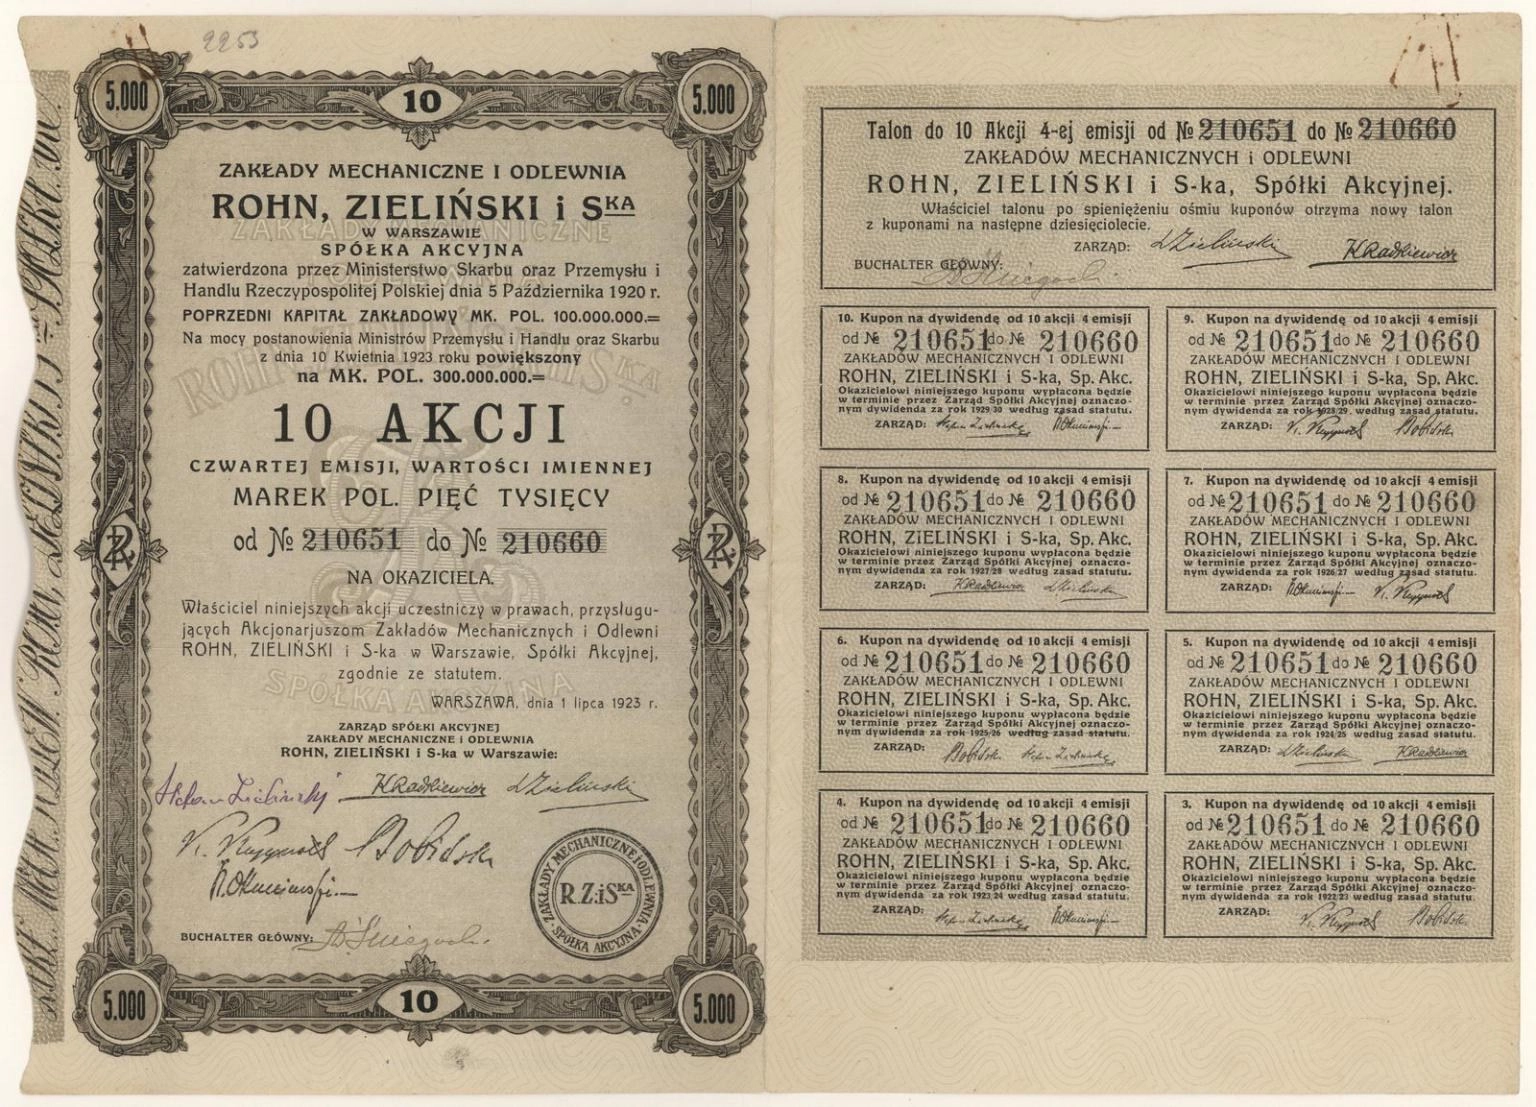 2253
5.000
10
5.000
ZAKŁADY MECHANICZNE I ODLEWNIA
ROHN, ZIELIŃSKI i SKA
W WARSZAWIE
SPÓŁKA AKCYJNA
zatwierdzona przez Ministerstwo Skarbu oraz Przemysłu i
Handlu Rzeczypospolitej Polskiej dnia 5 Października 1920 r.
POPRZEDNI KAPITAŁ ZAKŁADOWY MK. POL. 100.000.000.=
Na mocy postanowienia Ministrów Przemysłu i Handlu oraz Skarbu
z dnia 10 Kwietnia 1923 roku powiększony
na MK. POL. 300.000.000.=
10 AKCJI
CZWARTEJ EMISJI, WARTOŚCI IMIENNEJ
MAREK POL. PIĘĆ TYSIĘCY
od № 210651 do № 210660
NA OKAZICIELA.
Właściciel niniejszych akcji uczestniczy w prawach, przysługu-
jących Akcjonarjuszom Zakładów Mechanicznych i Odlewni
ROHN, ZIELIŃSKI i S-ka w Warszawie, Spółki Akcyjnej,
zgodnie ze statutem.
WARSZAWA, dnia 1 lipca 1923 r.
ZARZĄD SPÓŁKI AKCYJNEJ
ZAKŁADY MECHANICZNE i ODLEWNIA
ROHN, ZIELIŃSKI i S-ka w Warszawie:
Stefan Zieliński KRadkiewicz LZieliński
BUCHALTER GŁÓWNY:
ZAKŁADY MECHANICZNE I ODLEWNIA
R.Z.iSKA
SPÓŁKA AKCYJNA
5.000
10
5.000
Talon do 10 Akcji 4-ej emisji od № 210651 do № 210660
ZAKŁADÓW MECHANICZNYCH i ODLEWNI
ROHN, ZIELIŃSKI i S-ka, Spółki Akcyjnej.
Właściciel talonu po spieniężeniu ośmiu kuponów otrzyma nowy talon
z kuponami na następne dziesięciolecie.
ZARZĄD: LZieliński KRadkiewicz
BUCHALTER GŁÓWNY:
10. Kupon na dywidendę od 10 akcji 4 emisji
od № 210651 do № 210660
ZAKŁADY MECHANICZNYCH I ODLEWNI
ROHN, ZIELIŃSKI i S-ka, Sp. Akc.
Okazicielowi niniejszego kuponu wypłacona będzie
w terminie przez Zarząd Spółki Akcyjnej oznaczo-
nym dywidenda za rok 1929/30 według zasad statutu.
ZARZĄD:
9. Kupon na dywidendę od 10 akcji 4 emisji
od № 210651 do № 210660
ZAKŁADY MECHANICZNYCH I ODLEWNI
ROHN, ZIELIŃSKI i S-ka, Sp. Akc.
Okazicielowi niniejszego kuponu wypłacona będzie
w terminie przez Zarząd Spółki Akcyjnej oznaczo-
nym dywidenda za rok 1928/29 według zasad statutu.
ZARZĄD:
8. Kupon na dywidendę od 10 akcji 4 emisji
od № 210651 do № 210660
ZAKŁADY MECHANICZNYCH I ODLEWNI
ROHN, ZIELIŃSKI i S-ka, Sp. Akc.
Okazicielowi niniejszego kuponu wypłacona będzie
w terminie przez Zarząd Spółki Akcyjnej oznaczo-
nym dywidenda za rok 1927/28 według zasad statutu.
ZARZĄD: KRadkiewicz LZieliński
7. Kupon na dywidendę od 10 akcji 4 emisji
od № 210651 do № 210660
ZAKŁADY MECHANICZNYCH I ODLEWNI
ROHN, ZIELIŃSKI i S-ka, Sp. Akc.
Okazicielowi niniejszego kuponu wypłacona będzie
w terminie przez Zarząd Spółki Akcyjnej oznaczo-
nym dywidenda za rok 1926/27 według zasad statutu.
ZARZĄD:
6. Kupon na dywidendę od 10 akcji 4 emisji
od № 210651 do № 210660
ZAKŁADY MECHANICZNYCH I ODLEWNI
ROHN, ZIELIŃSKI i S-ka, Sp. Akc.
Okazicielowi niniejszego kuponu wypłacona będzie
w terminie przez Zarząd Spółki Akcyjnej oznaczo-
nym dywidenda za rok 1925/26 według zasad statutu.
ZARZĄD:
5. Kupon na dywidendę od 10 akcji 4 emisji
od № 210651 do № 210660
ZAKŁADY MECHANICZNYCH I ODLEWNI
ROHN, ZIELIŃSKI i S-ka, Sp. Akc.
Okazicielowi niniejszego kuponu wypłacona będzie
w terminie przez Zarząd Spółki Akcyjnej oznaczo-
nym dywidenda za rok 1924/25 według zasad statutu.
ZARZĄD: LZieliński KRadkiewicz
4. Kupon na dywidendę od 10 akcji 4 emisji
od № 210651 do № 210660
ZAKŁADY MECHANICZNYCH I ODLEWNI
ROHN, ZIELIŃSKI i S-ka, Sp. Akc.
Okazicielowi niniejszego kuponu wypłacona będzie
w terminie przez Zarząd Spółki Akcyjnej oznaczo-
nym dywidenda za rok 1923/24 według zasad statutu.
ZARZĄD:
3. Kupon na dywidendę od 10 akcji 4 emisji
od № 210651 do № 210660
ZAKŁADY MECHANICZNYCH I ODLEWNI
ROHN, ZIELIŃSKI i S-ka, Sp. Akc.
Okazicielowi niniejszego kuponu wypłacona będzie
w terminie przez Zarząd Spółki Akcyjnej oznaczo-
nym dywidenda za rok 1922/23 według zasad statutu.
ZARZĄD: